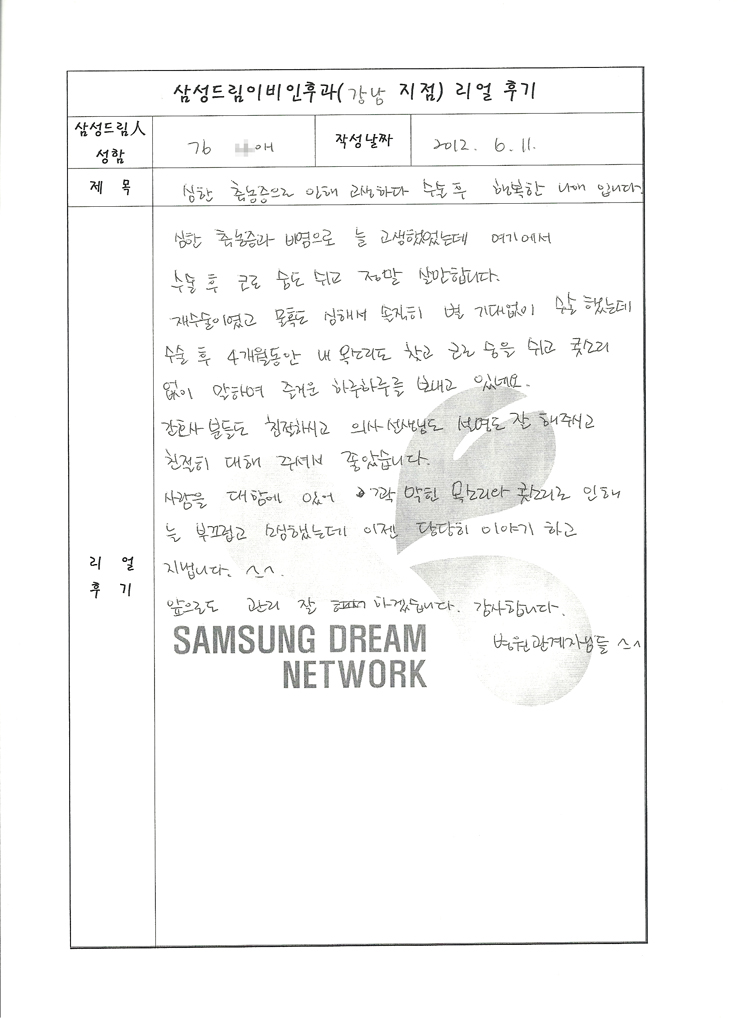 삼성드림이비인후과(강남 지점) 리얼 후기
삼성드림人
성함
애
작성날짜
2012. 6. 11.
제 목
심한 축농증으로 인해 고생하다 수술 후 행복한 나애 입니다.
심한 축농증과 비염으로 늘 고생했었는데 여기에서
수술 후 코로 숨도 쉬고 정말 살만합니다.
재수술이였고 물혹도 심해서 솔직히 별 기대없이 수술 했는데
수술 후 4개월동안 내 목소리도 찾고 코로 숨을 쉬고 콧소리
없이 말하며 즐거운 하루하루를 보내고 있네요.
간호사 분들도 친절하시고 의사선생님도 설명도 잘 해주시고
친절히 대해 주셔서 좋았습니다.
사람을 대함에 있어 꽉 막힌 목소리와 콧소리로 인해
늘 부끄럽고 소심했는데 이젠 당당히 이야기 하고
지냅니다. ^^.
앞으로도 관리 잘 하겠습니다. 감사합니다.
병원관계자님들 ^^
리 얼
후 기
SAMSUNG DREAM
NETWORK